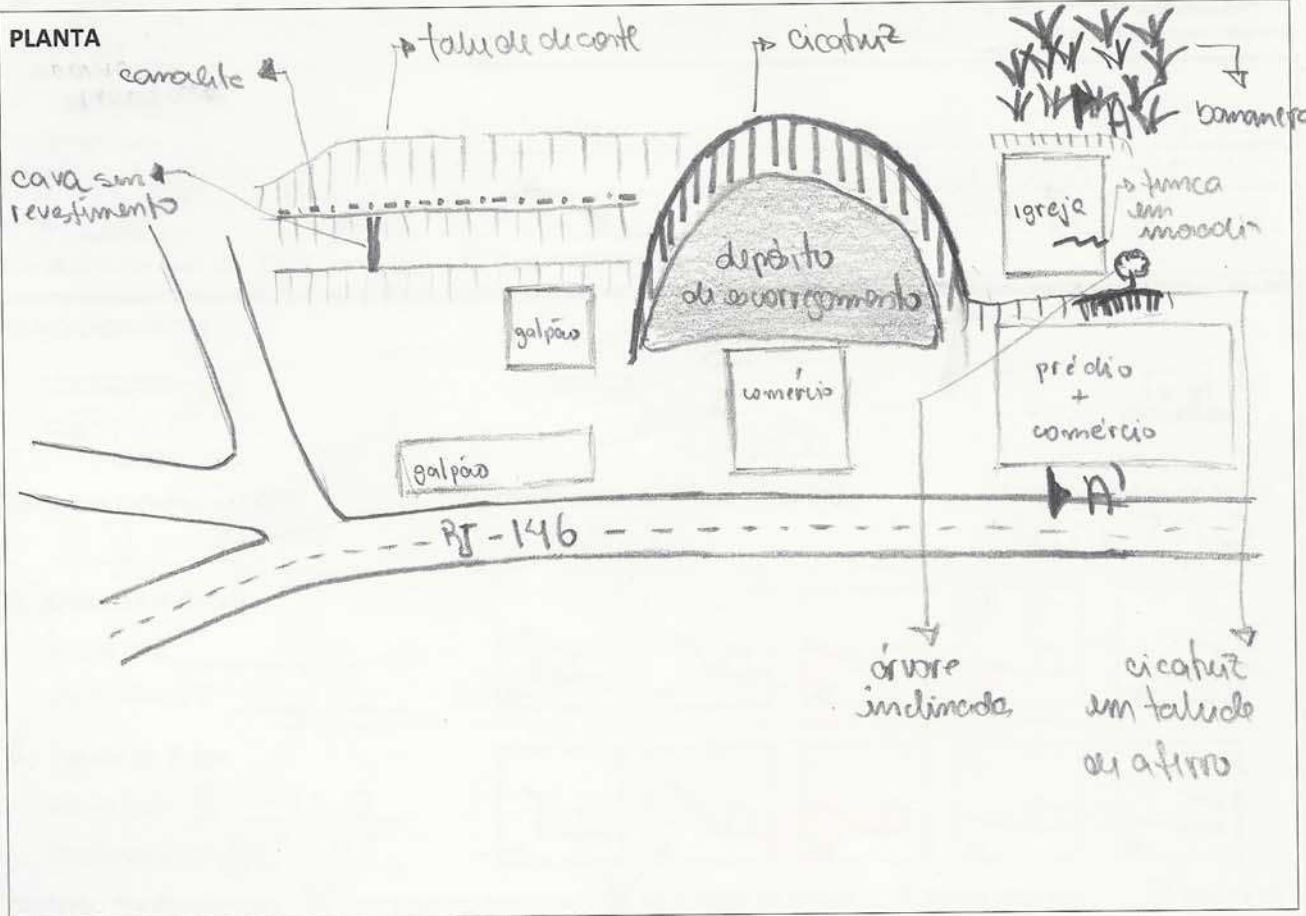 PLANTA
canalete
talude de corte
cicatriz
bananeira
cava sem
revestimento
A
igreja
trinca
em
moradia
depósito
de escorregamento
galpão
comércio
prédio
+
comércio
galpão
A'
RJ-146
árvore
inclinada
cicatriz
em talude
de aterro